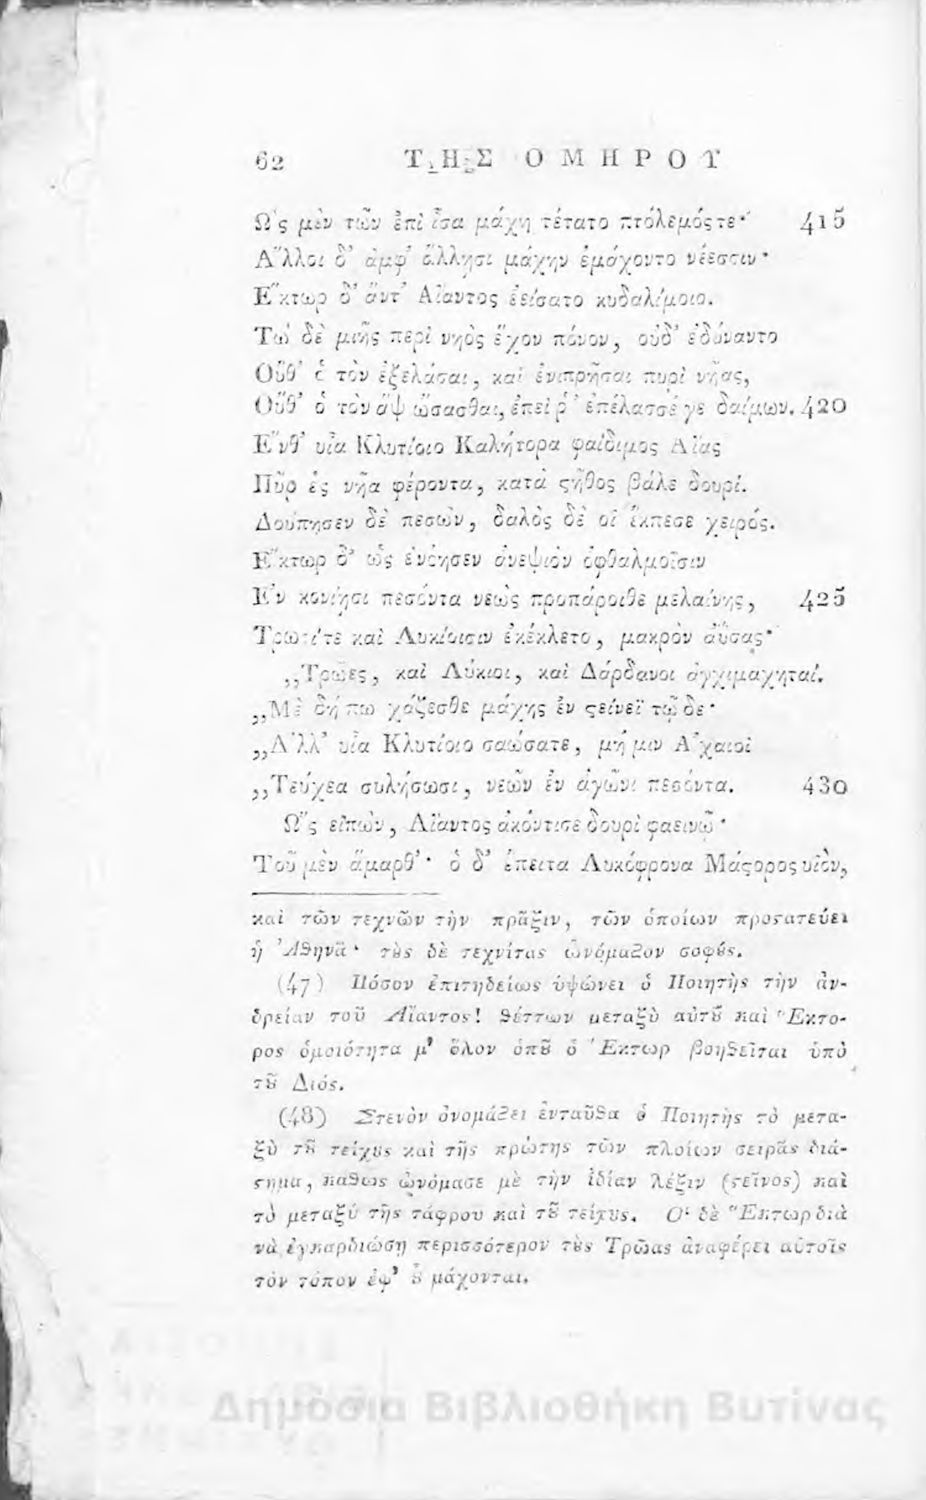 62 ΤΗΣ ΟΜΗΡΟΥ
Ω῝ς μὲν τῶν ἐπὶ ἶσα μάχη τέτατο πτόλεμός τε· 415
Α῎λλοι δ' ἀμφ' ἄλλῃσι μάχην ἐμάχοντο νέεσσιν·
Ε῞κτωρ δ' ἄντ' Αἴαντος ἐείσατο κυδαλίμοιο.
Τὼ δὲ μιῆς περὶ νηὸς ἔχον πόνον, οὐδ' ἐδύναντο
Οὔθ' ὁ τὸν ἐξελάσαι, καὶ ἐνιπρῆσαι πυρὶ νῆας,
Οὔθ' ὁ τὸν ἂψ ὤσασθαι, ἐπεὶ ρ' ἐπέλασσέ γε δαίμων. 420
Ε῎νθ' υἷα Κλυτίοιο Καλήτορα φαίδιμος Αἴας
Πῦρ ἐς νῆα φέροντα, κατὰ ϛῆθος βάλε δουρί.
Δούπησεν δὲ πεσὼν, δαλὸς δὲ οἱ ἔκπεσε χειρός.
Ε῞κτωρ δ' ὡς ἐνόησεν ἀνεψιὸν ὀφθαλμοῖσιν
Ε᾿ν κονίῃσι πεσόντα νεὼς προπάροιθε μελαίνης, 425
Τρωσί τε καὶ Λυκίοισιν ἐκέκλετο, μακρὸν ἀΰσας·
,,Τρῶες, καὶ Λύκιοι, καὶ Δάρδανοι ἀγχιμαχηταί.
,,Μὲ δή πω χάζεσθε μάχης ἐν ϛείνεϊ τῷ δε·
,,Α᾿λλ' υἷα Κλυτίοιο σαώσατε, μή μιν Α᾿χαιοὶ
,,Τεύχεα συλήσωσι, νεῶν ἐν ἀγῶνι πεσόντα. 430
Ω῝ς εἰπὼν, Αἴαντος ἀκόντισε δουρὶ φαεινῷ·
Τοῦ μὲν ἅμαρθ'· ὁ δ' ἔπειτα Λυκόφρονα Μάϛορος υἱὸν,
καὶ τῶν τεχνῶν τὴν πρᾶξιν, τῶν ὁποίων προϛατεύει
ἡ ᾿Αθηνᾶ· τȣ̀ς δὲ τεχνίτας ὠνόμαζον σοφȣ́ς.
(47) Πόσον ἐπιτηδείως ὑψώνει ὁ Ποιητὴς τὴν ἀν-
δρείαν τοῦ Αἴαντος! θέττων μεταξὺ αὐτȣ͂ καὶ ῞Εκτο-
ρος ὁμοιότητα μ' ὅλον ὁπȣ͂ ὁ ῞Εκτωρ βοηθεῖται ὑπὸ
τȣ͂ Διός.
(48) Στενὸν ὀνομάζει ἐνταῦθα ὁ Ποιητὴς τὸ μετα-
ξὺ τȣ͂ τείχȣς καὶ τῆς πρώτης τῶν πλοίων σειρᾶς διά-
ϛημα, καθὼς ὠνόμασε μὲ τὴν ἰδίαν λέξιν (ϛεῖνος) καὶ
τὸ μεταξὺ τῆς τάφρου καὶ τȣ͂ τείχȣς. Ο῾ δὲ ῞Εκτωρ διὰ
νὰ ἐγκαρδιώσῃ περισσότερον τȣ̀ς Τρῶας ἀναφέρει αὐτοῖς
τὸν τόπον ἐφ' ȣ͂̔ μάχονται.
Δημόσια Βιβλιοθήκη Βυτίνας